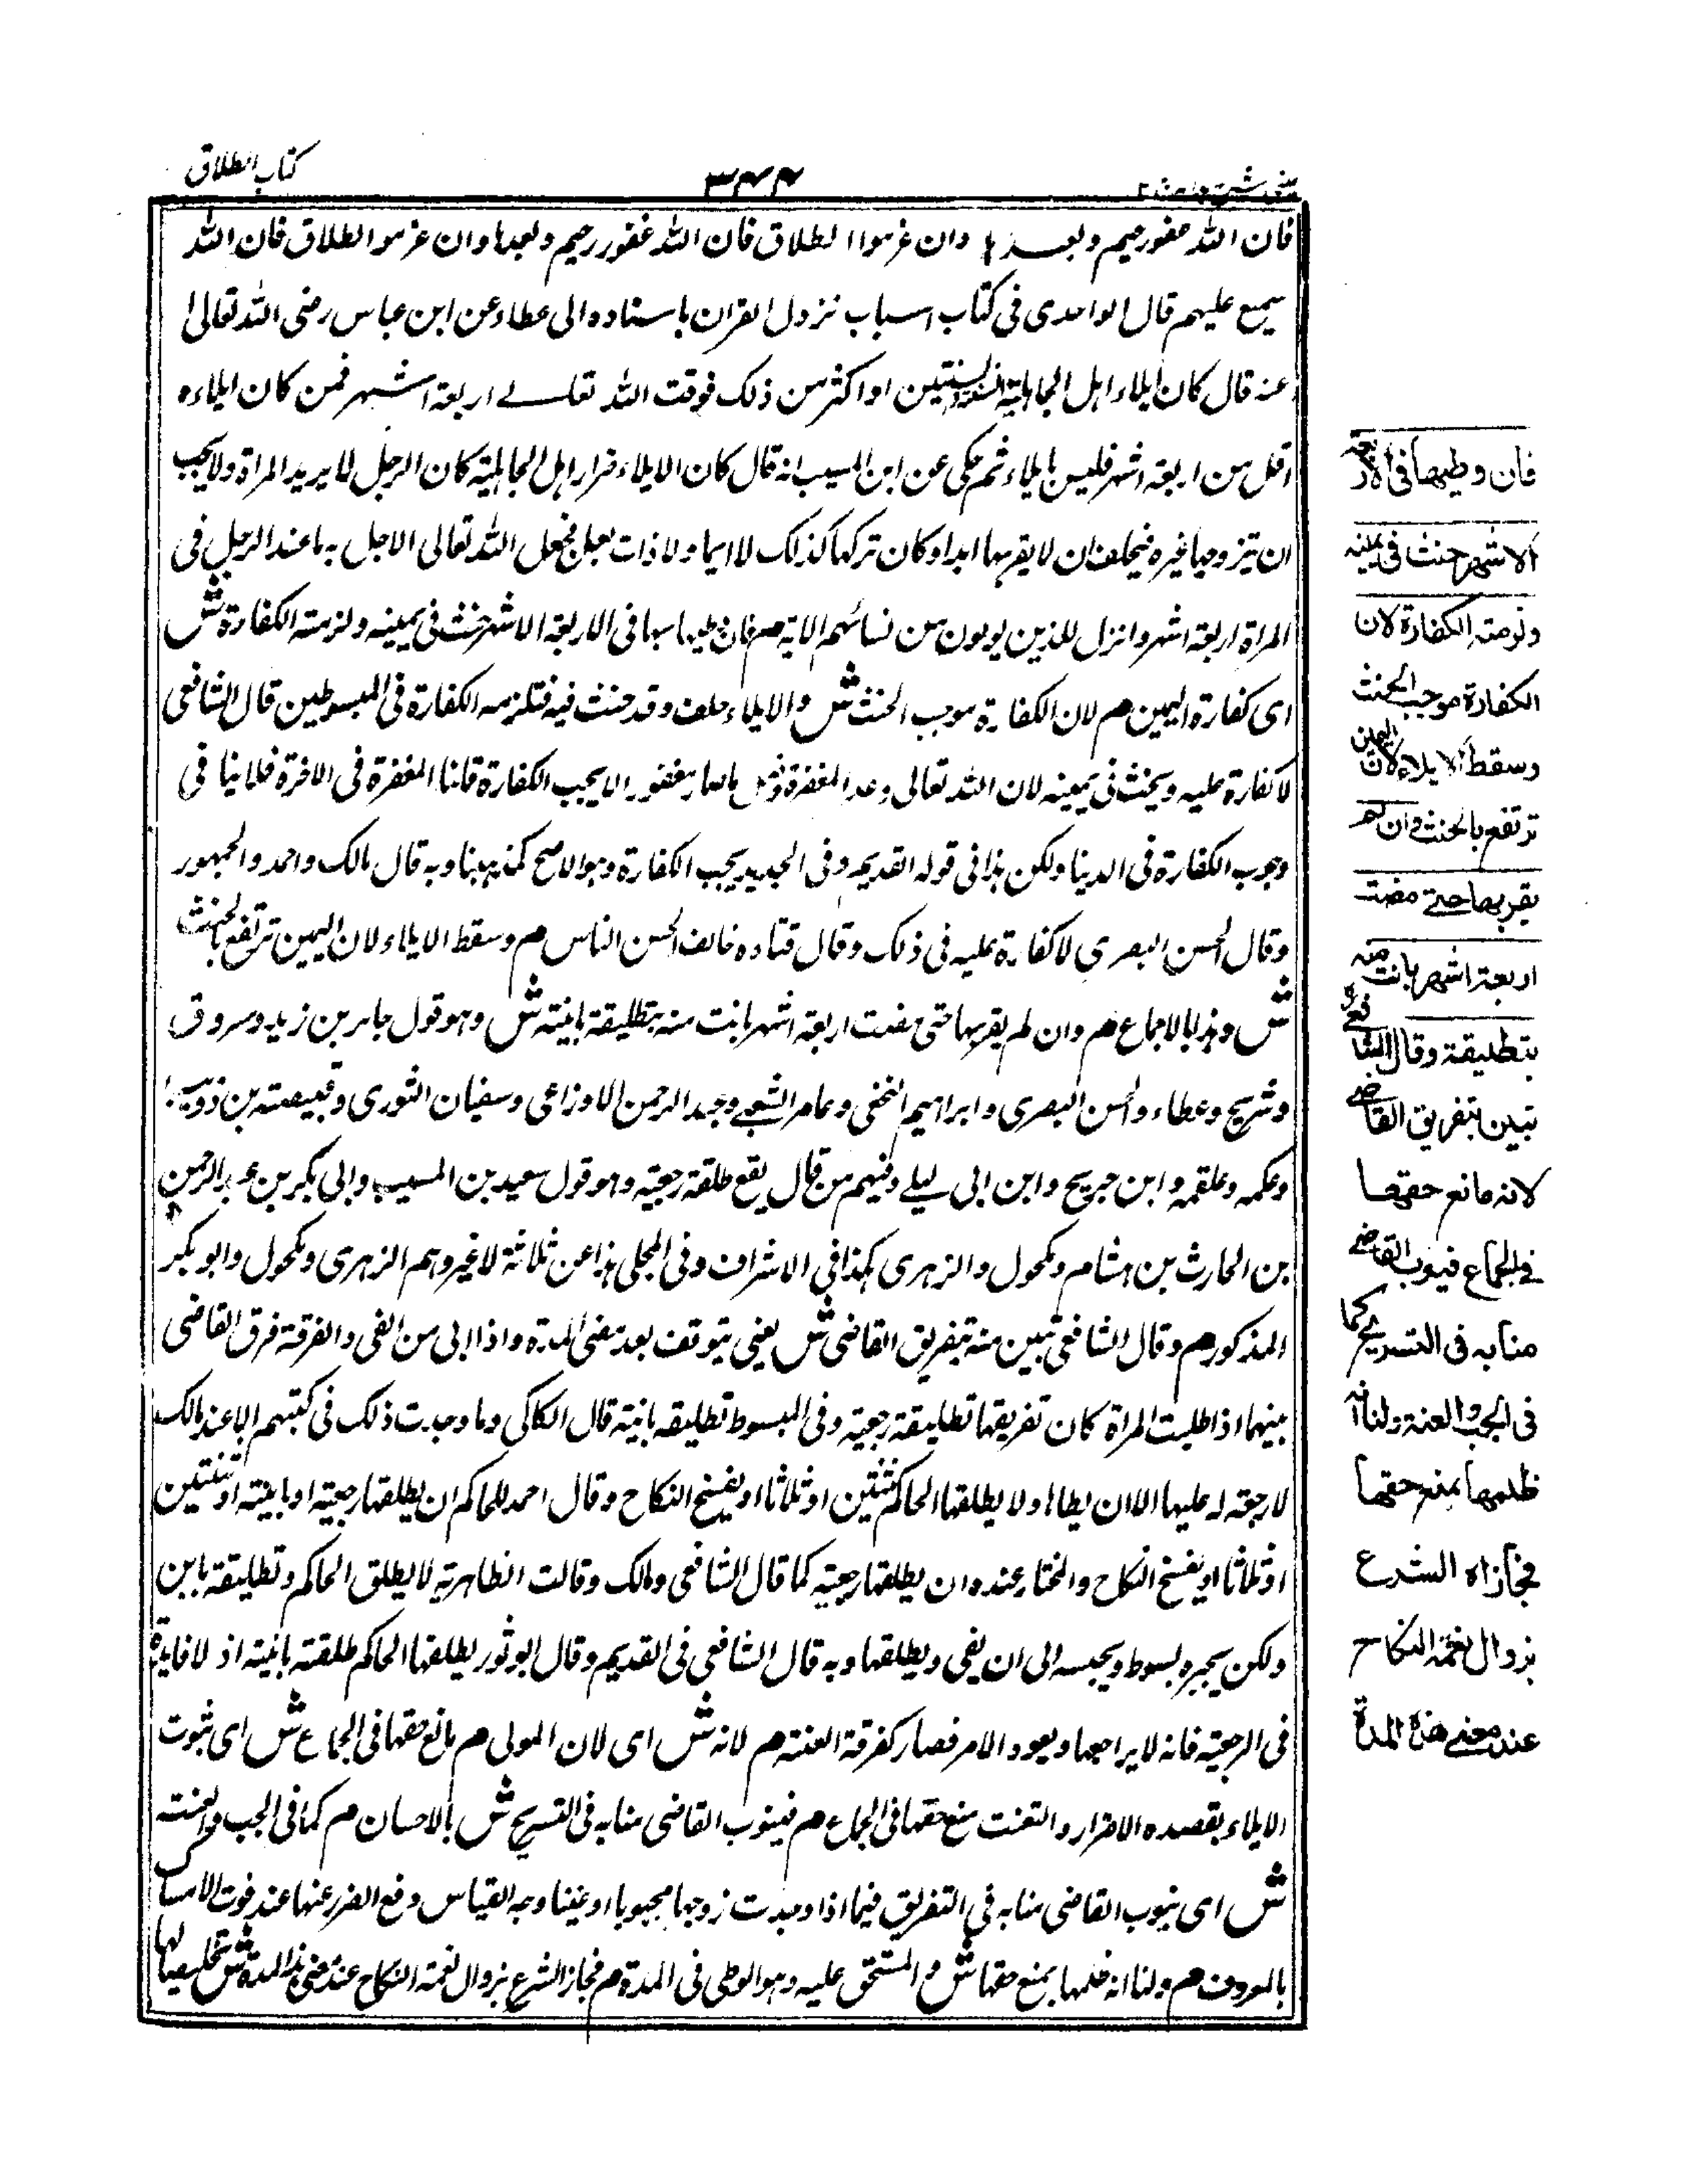 كتاب الطلاق
٣٤٤
فان الله غفور رحيم وبعدها وان عزموا الطلاق فان الله غفور رحيم وبعدها وان عزموا الطلاق فان الله
سميع عليم قال الواحدى فى كتاب اسباب نزول القران باسناده الى عطاء عن ابن عباس رضى الله تعالى
عنه قال كان ايلاء اهل الجاهلية السنة والسنتين او اكثر من ذلك فوقت الله تعالے اربعة اشهر فمن كان ايلاءه
اقل من اربعة اشهر فليس بايلاء ثم حكى عن ابن المسيب انه قال كان الايلاء ضرار اهل الجاهلية كان الرجل لا يريد المراة ولا يحب
ان يتزوجها غيره فيحلف ان لا يقربها ابدا وكان تركها كذلك لا ايما ولا ذات بعل فجعل الله تعالى الاجل به ما عند الرجل فى
المراة اربعة اشهر وانزل للذين يولون من نسائهم الاية م فان وطيها فى الاربعة الاشهر حنث فى يمينه ولزمته الكفارة ش
اى كفارة اليمين م لان الكفارة موجب الحنث ش والايلاء حلف وقد حنث فيه فتلزمه الكفارة فى المبسوطين قال الشافعى
لا كفارة عليه ويحنث فى يمينه لان الله تعالى وعد المغفرة الا يجب الكفارة قلنا المغفرة فى الاخرة فلا ينافى
وجوب الكفارة فى الدنيا ولكن هذا فى قوله القديم وفى الجديد يجب الكفارة وهو الاصح كمذهبنا وبه قال مالك واحمد والجمهور
وقال الحسن البصرى لا كفارة عليه فى ذلك وقال قتاده خالف الحسن الناس م وسقط الايلاء لان اليمين ترتفع بالحنث
ش وهذا بالاجماع م وان لم يقربها حتى مضت اربعة اشهر بانت منه بتطليقة بائنة ش وهو قول جابر بن زيد ومسروق
وشريح وعطاء والحسن البصرى وابراهيم النخعى وعامر الشعبے وعبد الرحمن الاوزاعى وسفيان الثورى وقبيصة بن ذويب
وعكرمه وعلقمه وابن جريج وابن ابى ليلے وفيهم من قال يقع طلقة رجعية وهو قول سعيد بن المسيب وابى بكر بن عبد الرحمن
بن الحارث بن هشام ومكحول والزهرى هكذا فى الاشراف وفى المحلى هذا عن ثلاثة لا غير وهم الزهرى ومكحول وابو بكر
المذكور م وقال الشافعى تبين منه بتفريق القاضى ش يعنى يتوقف بعد مضى المدة واذا ابى من الفى والفرقة فرق القاضى
بينهما اذا طلبت المراة كان تفريقها تطليقة رجعية وفى المبسوط تطليقه بائنة قال الكاكى وما وجدت ذلك فى كتبهم الا عند مالك
لا رجعة له عليها الا ان يطاها ولا يطلقها الحاكم ثنتين او ثلاثا او يفسخ النكاح وقال احمد للحاكم ان يطلقها رجعية او بائنة او ثنتين
او ثلاثا او يفسخ النكاح والمختار عنده ان يطلقها رجعية كما قال الشافعى ومالك وقالت الظاهرية لا يطلق الحاكم وتطليقة باين
ولكن يجبره بسوط ويحبسه الى ان يفى ويطلقها وبه قال الشافعى فى القديم وقال ابو ثور يطلقها الحاكم طلقة بائنة اذ لا فايدة
فى الرجعية فانه لا يراجعها ويعود الامر فصار كفرقة العنة م لانه ش اى لان المولى م مانع حقها فى الجماع ش اى ثبوت
الايلاء بقصده الاضرار والتعنت منع حقها فى الجماع م فينوب القاضى منابه فى التسريح ش بالاحسان م كما فى الجب والعنة
ش اى ينوب القاضى منابه فى التفريق فيما اذا وجدت زوجها مجبوبا او عنينا وجه القياس دفع الضرر عنها عند فوت الامساك
بالمعروف م ولنا انه ظلمها بمنع حقها ش م المستحق عليه وهو الوطى فى المدة م فجازاه الشرع بزوال نعمة النكاح عند مضى هذه المدة ش تخليصا لها
فان وطيها فى الاربعة
الاشهر حنث فى يمينه
ولزمته الكفارة لان
الكفارة موجب الحنث
وسقط الايلاء لان اليمين
ترتفع بالحنث وان لم
يقربها حتے مضت
اربعة اشهر بانت منه
بتطليقة وقال الشافعي
تبين بتفريق القاضے
لانه مانع حقها
فى الجماع فينوب القاضے
منابه فى التسريح كما
فى الجب والعنة ولنا انه
ظلمها بمنع حقها
فجازاه الشرع
بزوال نعمة النكاح
عند مضے هذه المدة